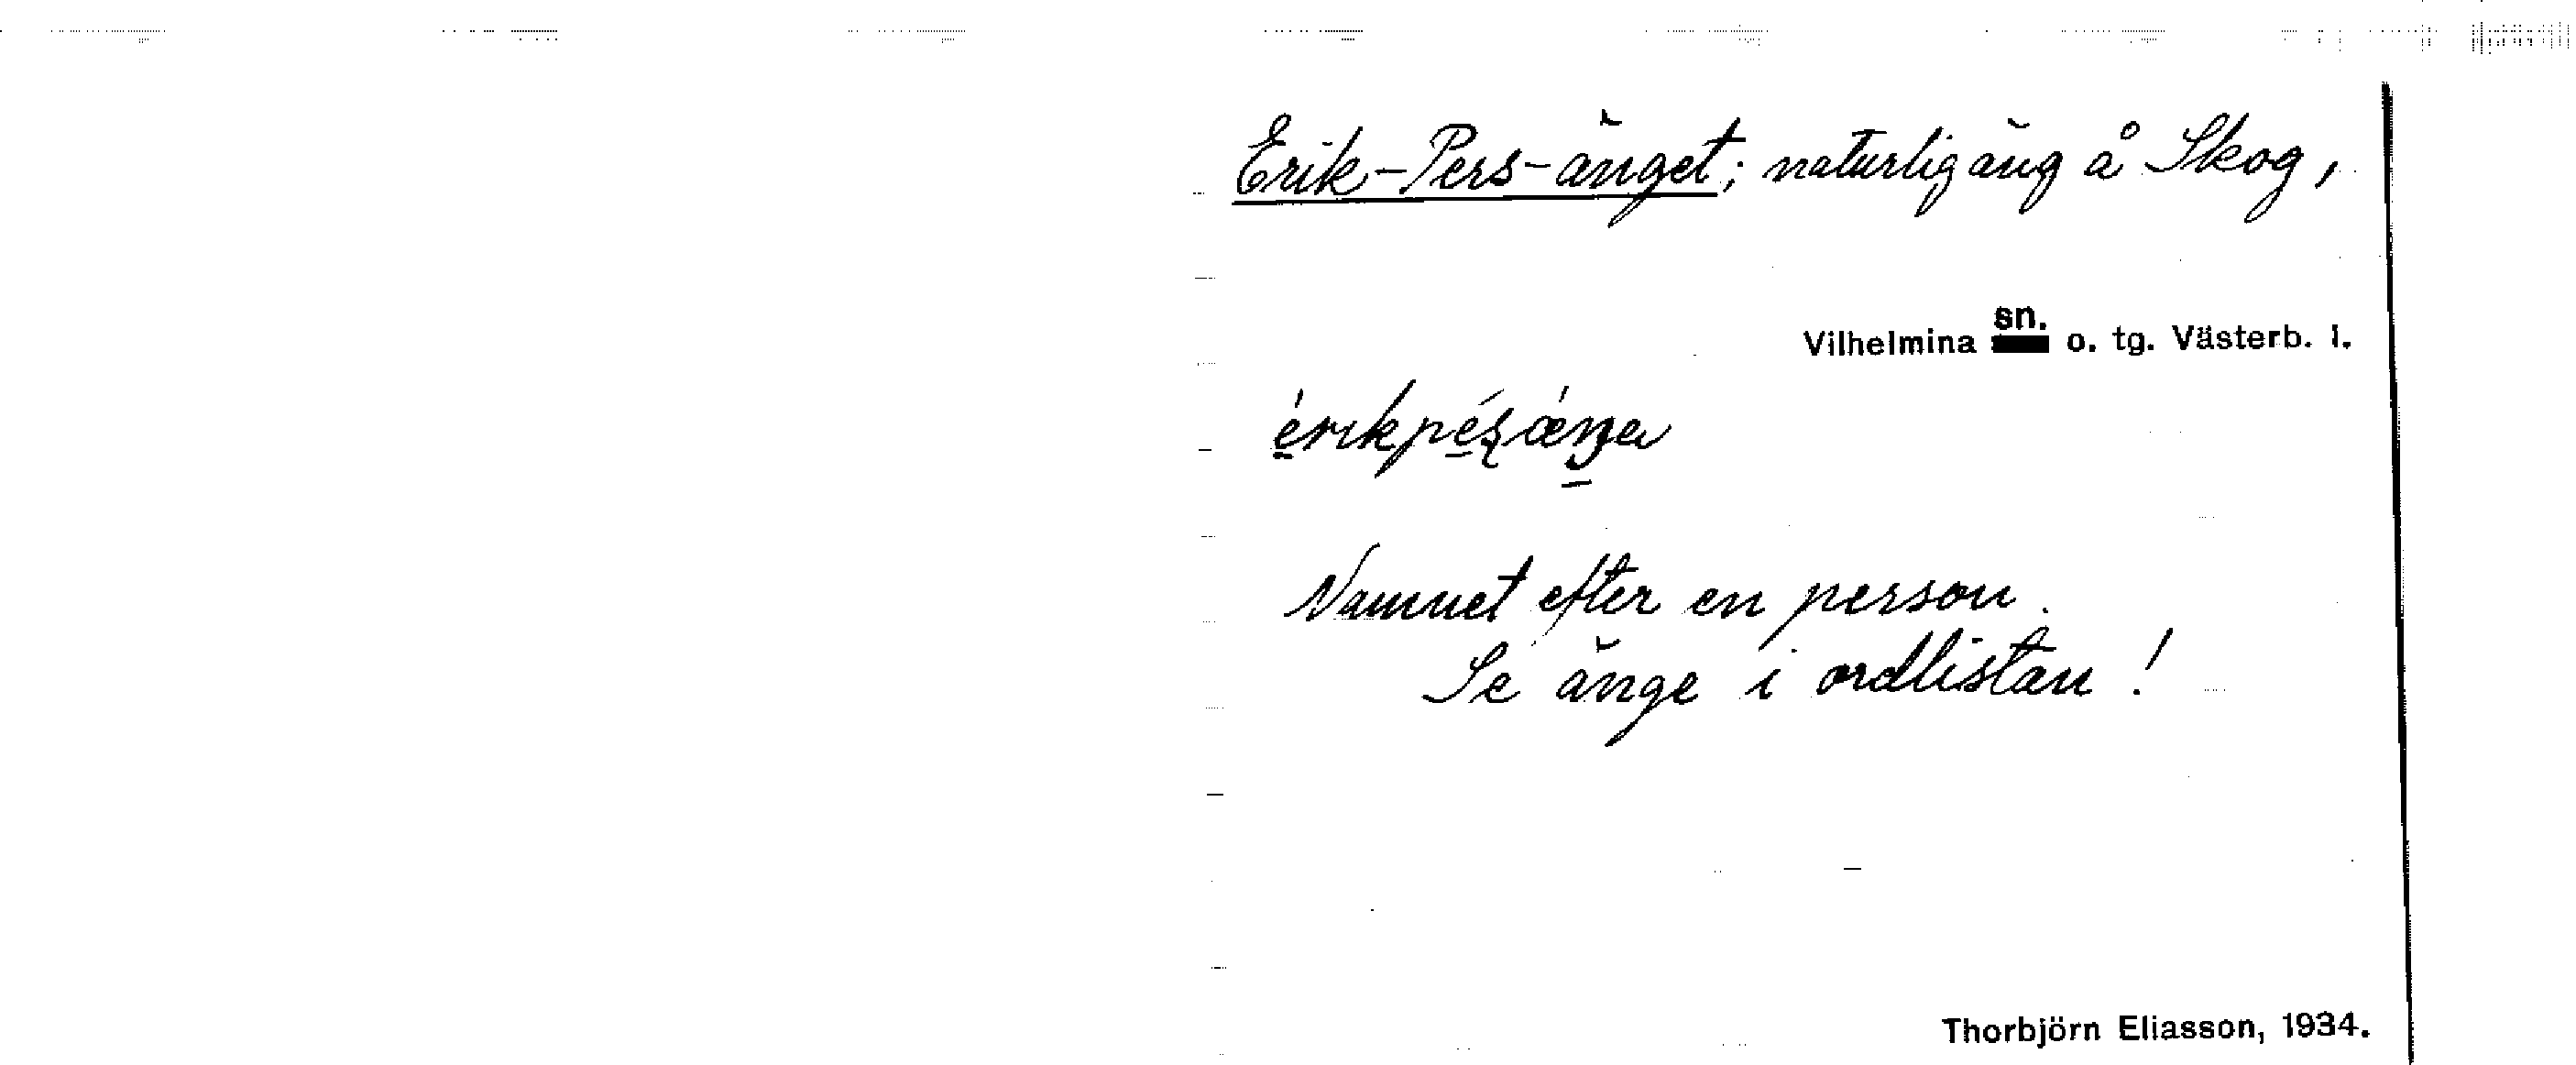 Erik-Pers-änget; naturlig äng å Skog,
Vilhelmina sn. o. tg. Västerb. l.
Namnet efter en person.
Se änge i ordlistan!
Thorbjörn Eliasson, 1934.